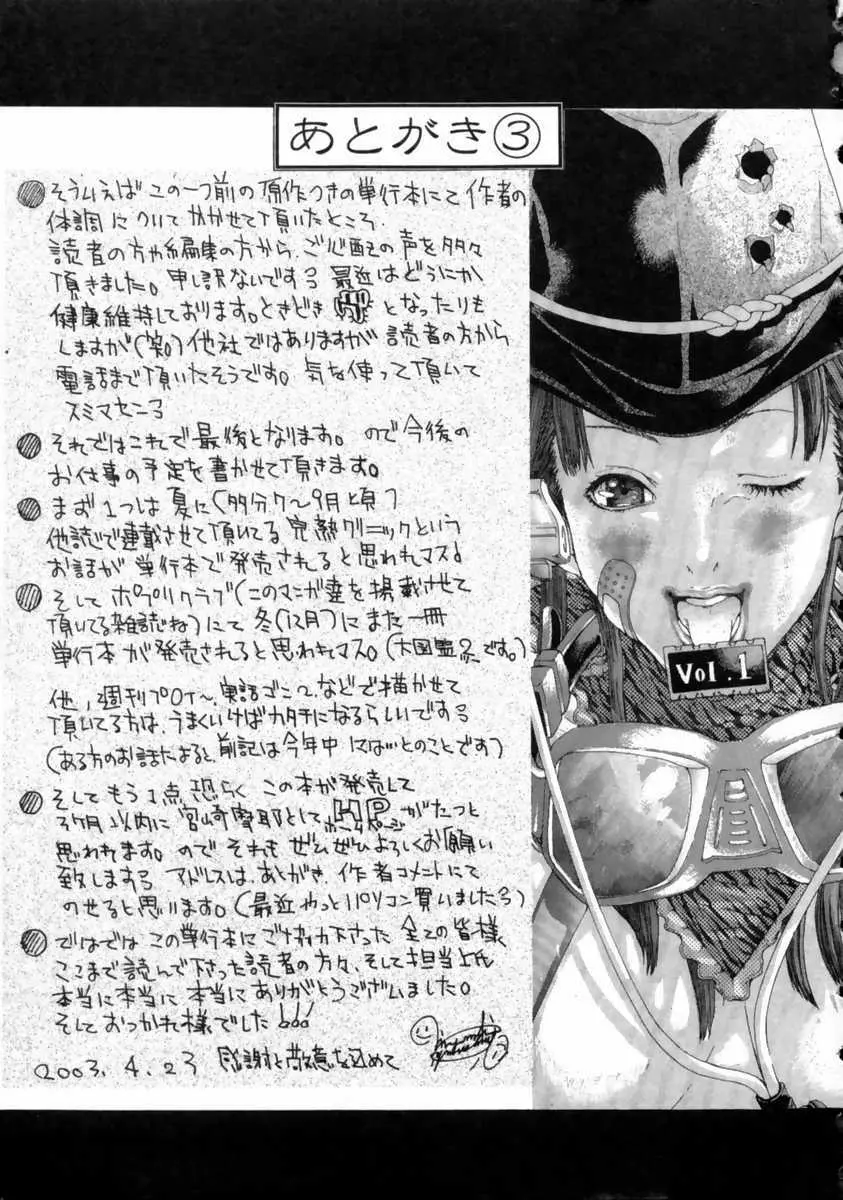 あとがき③
そういえば この一つ前の原作つきの単行本にて作者の
体調についてかかせて頂いたところ.
読者の方や編集の方から、ご心配の声を多々
頂きました。申し訳ないです 最近はどうにか
健康維持しております。ときどき となったりも
しますが(笑) 他社ではありますが 読者の方から
電話まで頂いたそうです。気を使って頂いて
スミマセン
それではこれで最後となります。ので今後の
お仕事の予定を書かせて頂きます。
まず1つは夏に(多分7〜9月頃)
他誌で連載させて頂いてる 完熟クリニックという
お話が単行本で発売されると思われマス
そして ポプリクラブ(このマンガ達を掲載させて
頂いてる雑誌ね)にて 冬(12月)にまた一冊
単行本が発売されると思われマス。(です。)
他、週刊プロイ〜、実話ごこへなどで描かせて
頂いてる方は、うまくいけばカタチになるらしいです
(ある方のお話によると、前記は今年中にはないとのことです)
そしてもう1点、恐らくこの本が発売して
3ヶ月以内に宮崎摩耶としてHPホームページがたつと
思われます。ので それも ぜひぜひよろしくお願い
致します アドレスは、あとがき、作者コメントにて
のせると思います。(最近やっとパソコン買いました)
ではでは この単行本にご協力下さった 全ての皆様、
ここまで読んで下さった読者の方々、そして担当上氏
本当に本当に本当にありがとうございました。
そしておつかれ様でした!!!
2003.4.23 感謝と敬意を込めて
Vol.1